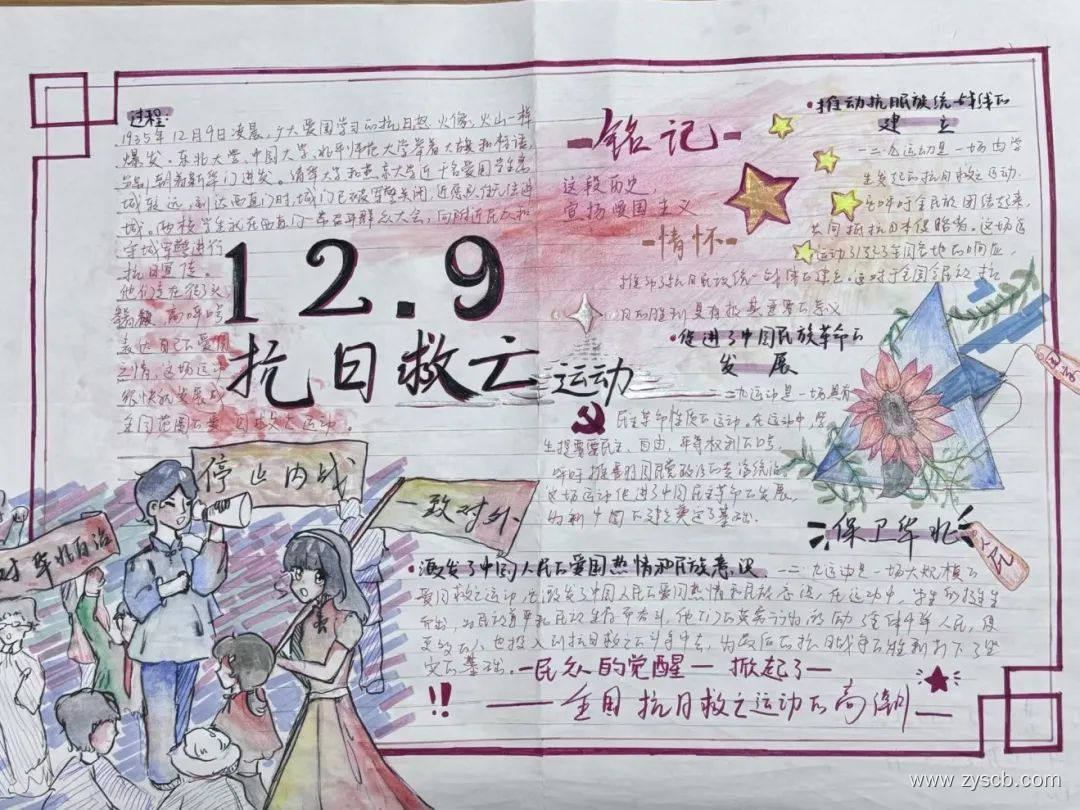 过程:
1935年12月9日凌晨,广大爱国学习的抗日怒火像火山一样
爆发。东北大学、中国大学、北平师范大学举着大旗和标语,
向新华门进发。清华大学和燕京大学近千名爱国学生离
城较远,到达西直门时,城门已被军警关闭
城。两校学生就在西直门召开群众大会,向附近民众和
守城军警进行
抗日宣传。
他们
表达自己的爱国
之情。这场运动
很快就发展成
全国范围的 救亡运动。
12.9
抗日救亡
运动
-铭记-
这段历史,
宣扬爱国主义
-情怀-
•推动抗日民族统一战线的
建立
一二·九运动是一场由学
生发起的抗日救亡运动,
全民族团结起来,
共同抵抗日本侵略者。这场运
动引起了全国各地的响应,
推动了抗日民族统一战线的建立。这对于全国
日的胜利具有极其重要的意义
•促进了中国民族革命的
发展
一二九运动是一场具有
民主革命性质的运动。在运动中,学
生提出要民主、自由、平等权利的
国民党政府的
这场运动促进了中国民主革命的发展,
为新中国的建立奠定了基础。
保卫华北
停止内战
一致对外
对华北自治
•激发了中国人民的爱国热情和民族意识、一二·九运动是一场大规模的
爱国救亡运动,它激发了中国人民的爱国热情和民族意识,在运动中,学生们挺身
而出,为民族尊严和民族生存而奋斗,他们的英勇行为激励 全体中华人民,使
更多的人也投入到抗日救亡的斗争中去,为最后的抗日战争的胜利打下了坚
实的基础。-民众的觉醒一掀起了一
!! ——全国抗日救亡运动的高潮——
www.zyscb.com